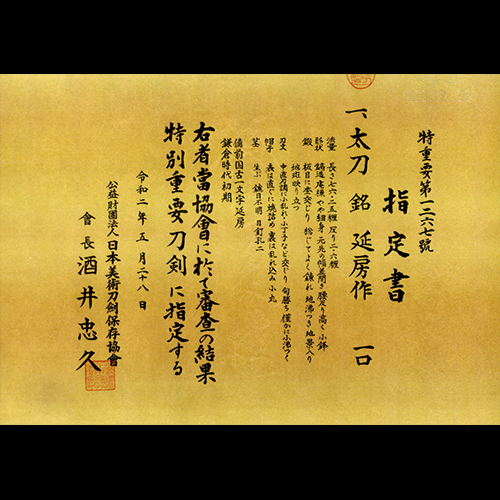 特重要第一二六七號
指定書
一、太刀 銘 延房作 一口
法量 長さ七六・二五糎 反り二・六糎
形状 鎬造 庵棟 やや細身 元先の幅差開き 腰反り高く 小鋒
鍛 板目に杢交じり 總じてよく錬れ 地沸つき 地景入り
地斑映り立つ
刃文 中直刃調に小乱れ・小丁子など交じり 匂勝ち 僅かに小沸つく
帽子 表は直ぐに焼詰め 裏は乱れ込み 小丸
茎 生ぶ 鑢目不明 目釘孔二
備前国古一文字延房
鎌倉時代初期
右者當協會に於て審査の結果
特別重要刀劍に指定する
令和二年五月二十八日
公益財團法人 日本美術刀劍保存協會
會長 酒井忠久